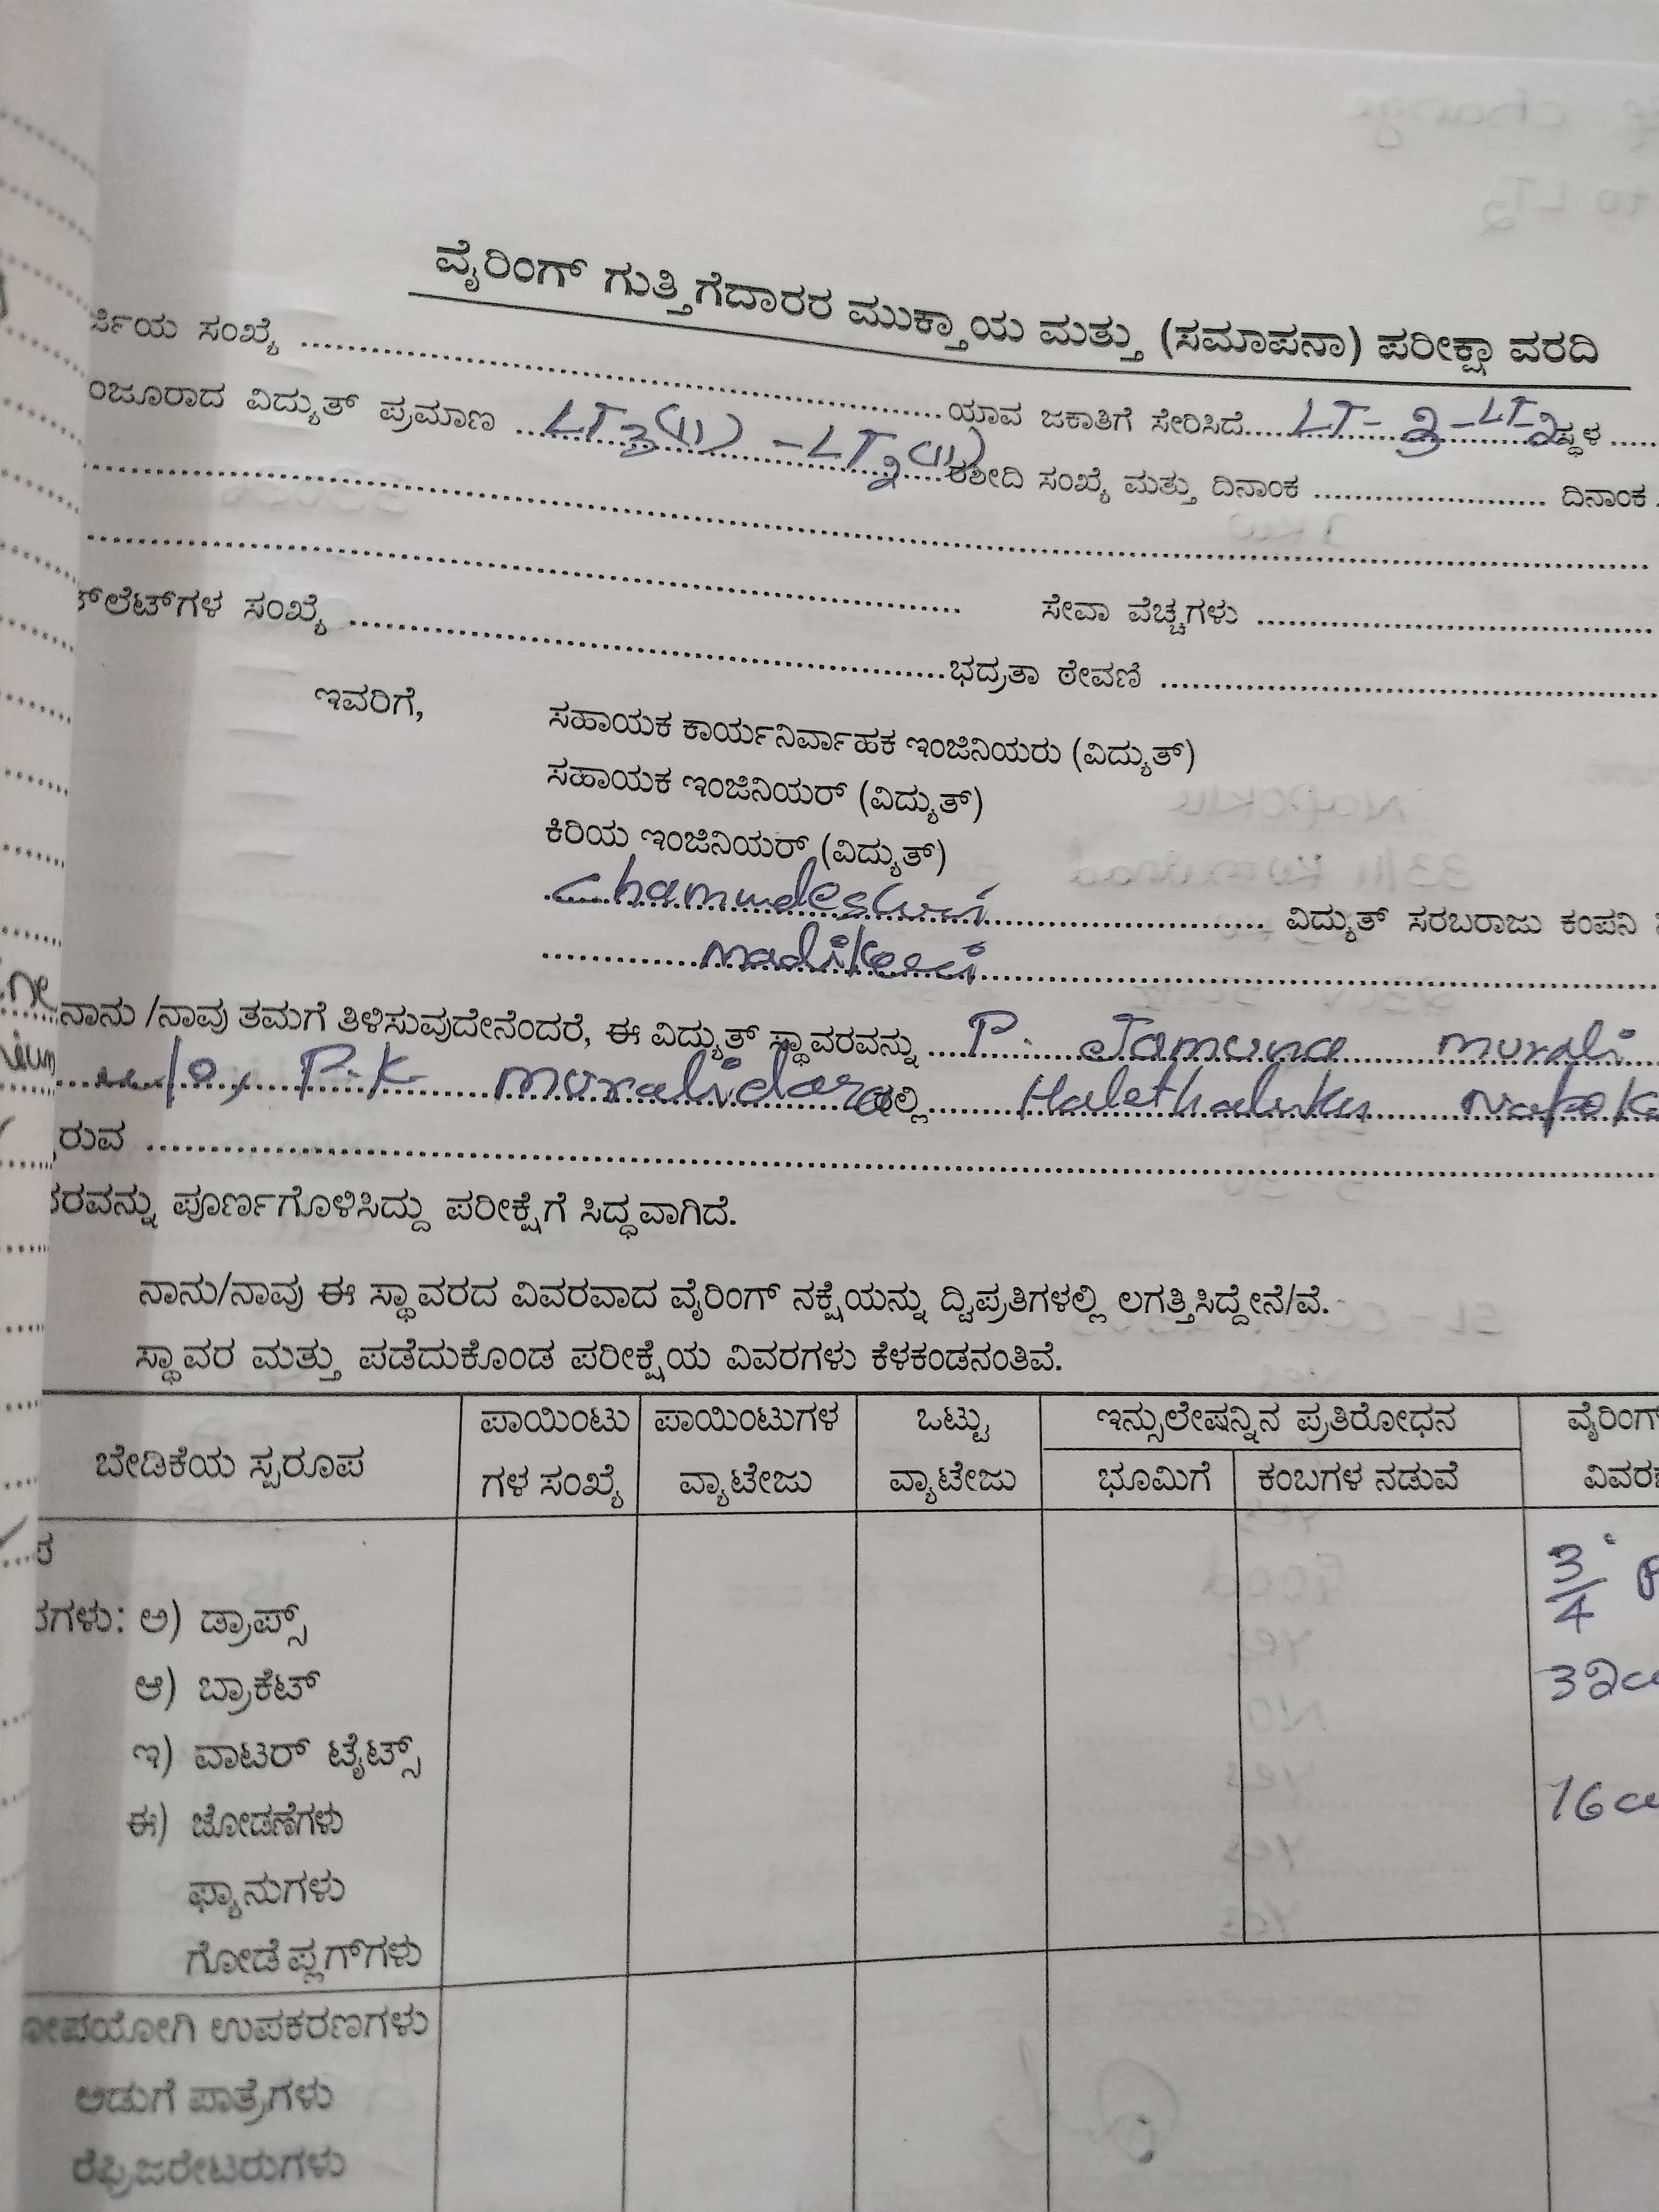 ವೈರಿಂಗ್ ಗುತ್ತಿಗೆದಾರರ ಮುಕ್ತಾಯ ಮತ್ತು (ಸಮಾಪನಾ) ಪರೀಕ್ಷಾ ವರದಿ
ಸಂಖ್ಯೆ ........ ಯಾವ ಜಕಾತಿಗೆ ಸೇರಿಸಿದೆ.... LT- 3 - LT-2 ಸ್ಥಳ ......
ಂಜೂರಾದ ವಿದ್ಯುತ್ ಪ್ರಮಾಣ ... LT3(ii) - LT2(ii) ರಶೀದಿ ಸಂಖ್ಯೆ ಮತ್ತು ದಿನಾಂಕ ........ ದಿನಾಂಕ
ಸೇವಾ ವೆಚ್ಚಗಳು ........
ಲೆಟ್‌ಗಳ ಸಂಖ್ಯೆ ........ ಭದ್ರತಾ ಠೇವಣಿ ........
ಇವರಿಗೆ,
ಸಹಾಯಕ ಕಾರ್ಯನಿರ್ವಾಹಕ ಇಂಜಿನಿಯರು (ವಿದ್ಯುತ್)
ಸಹಾಯಕ ಇಂಜಿನಿಯರ್ (ವಿದ್ಯುತ್)
ಕಿರಿಯ ಇಂಜಿನಿಯರ್ (ವಿದ್ಯುತ್)
Chamudeswri ........ ವಿದ್ಯುತ್ ಸರಬರಾಜು ಕಂಪನಿ
........ madikeri ........
ನಾನು /ನಾವು ತಮಗೆ ತಿಳಿಸುವುದೇನೆಂದರೆ, ಈ ವಿದ್ಯುತ್ ಸ್ಥಾವರವನ್ನು .... P. Jamuna murali
w/o, P.K muralidara ದಲ್ಲಿ ...... Halethaluku Napok
ರುವ ........
ರವನ್ನು ಪೂರ್ಣಗೊಳಿಸಿದ್ದು ಪರೀಕ್ಷೆಗೆ ಸಿದ್ಧವಾಗಿದೆ.
ನಾನು/ನಾವು ಈ ಸ್ಥಾವರದ ವಿವರವಾದ ವೈರಿಂಗ್ ನಕ್ಷೆಯನ್ನು ದ್ವಿಪ್ರತಿಗಳಲ್ಲಿ ಲಗತ್ತಿಸಿದ್ದೇನೆ/ವೆ.
ಸ್ಥಾವರ ಮತ್ತು ಪಡೆದುಕೊಂಡ ಪರೀಕ್ಷೆಯ ವಿವರಗಳು ಕೆಳಕಂಡನಂತಿವೆ.
ಬೇಡಿಕೆಯ ಸ್ವರೂಪ
ಪಾಯಿಂಟು
ಗಳ ಸಂಖ್ಯೆ
ಪಾಯಿಂಟುಗಳ
ವ್ಯಾಟೇಜು
ಒಟ್ಟು
ವ್ಯಾಟೇಜು
ಇನ್ಸುಲೇಷನ್ನಿನ ಪ್ರತಿರೋಧನ
ಭೂಮಿಗೆ
ಕಂಬಗಳ ನಡುವೆ
ವೈರಿಂಗ್
ವಿವರ
3/4
ಗಳು: ಅ) ಡ್ರಾಪ್ಸ್
ಆ) ಬ್ರಾಕೆಟ್
32
ಇ) ವಾಟರ್ ಟೈಟ್ಸ್
ಈ) ಜೋಡಣೆಗಳು
16
ಫ್ಯಾನುಗಳು
ಗೋಡೆ ಪ್ಲಗ್‌ಗಳು
ಪಯೋಗಿ ಉಪಕರಣಗಳು
ಅಡುಗೆ ಪಾತ್ರೆಗಳು
ರೆಫ್ರಿಜರೇಟರುಗಳು